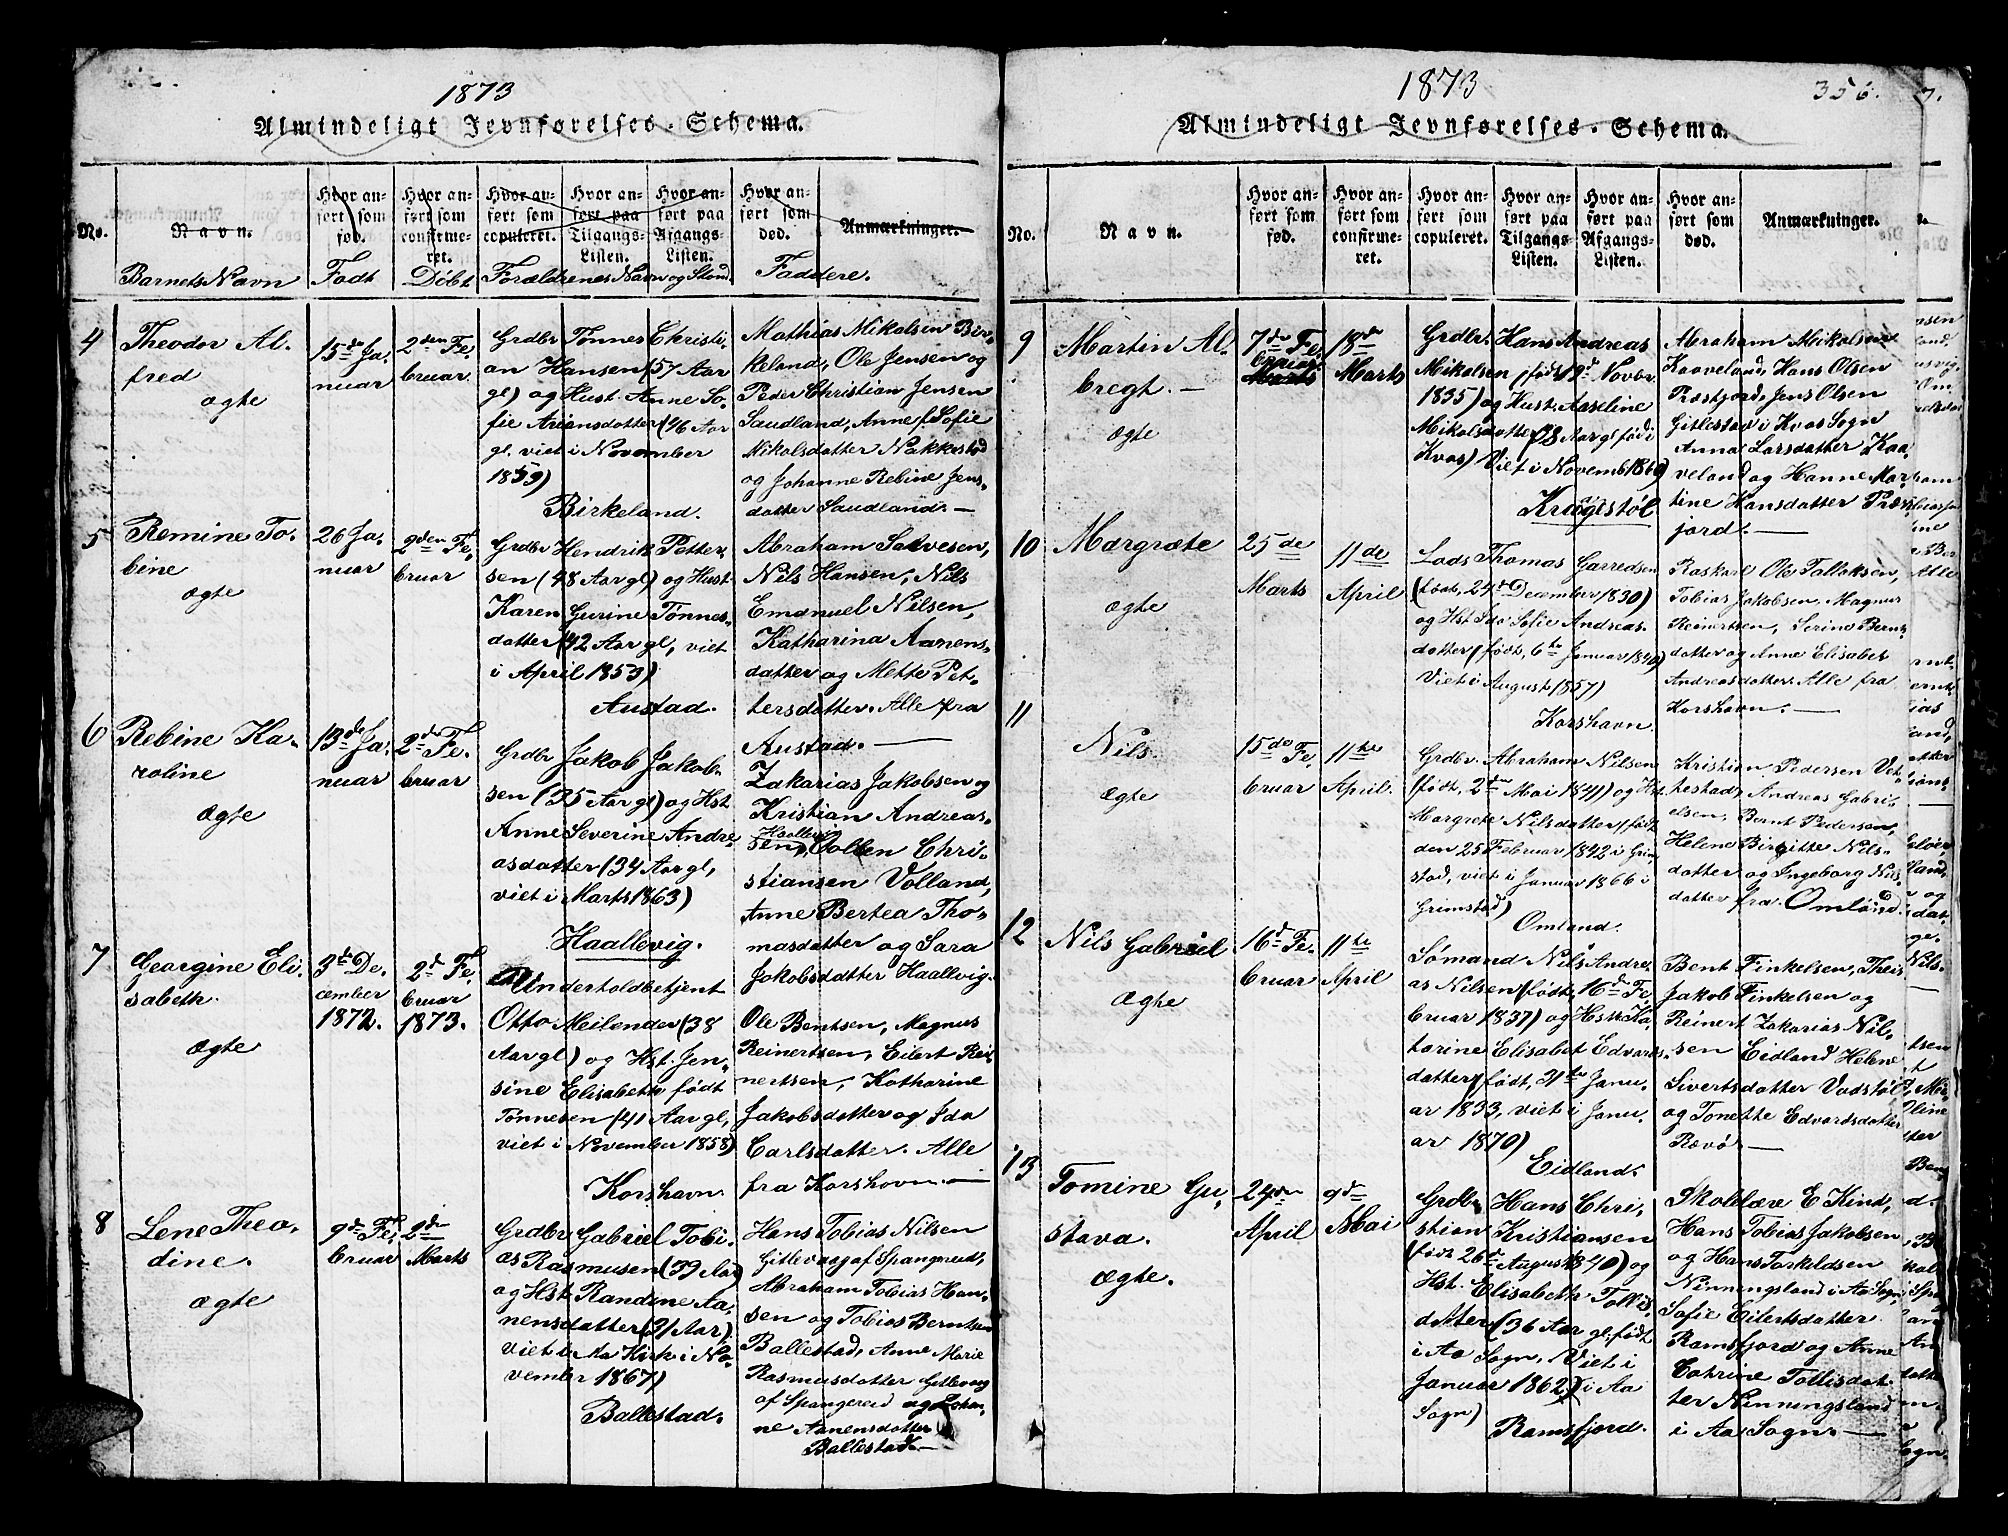 1873
Almindeligt Jevnførelses-Schema.
No.
Navn.
Hvor an-
ført som
fød.
Hvor an-
ført som
confirme-
ret.
Hvor an-
ført som
copuleret.
Hvor an-
ført paa
Tilgangs-
Listen.
Hvor an-
ført paa
Afgangs-
Listen.
Hvor an-
ført som
død.
Anmærkninger.
Barnets Navn
Født
Døbt
Forældrenes Navn og Stand
Faddere.
4
Theodor Al-
fred
ægte
15de Ja-
nuar
2den Fe-
bruar
Grdbr Tønnes Christi-
an Hansen (57 Aar
gl) og Hust. Anne So-
fie Ariansdotter (46 Aar
gl. viet i November
1859)
Birkeland.
Mathias Mikalsen Bir-
keland, Ole Jensen og
Peder Christian Jensen
Saudland, Anne Sofie
Mikalsdatter Nakkestad
og Johanne Rebine Jens-
datter Saudland.—
5
Remine To-
bine
ægte
26 Ja-
nuar
2den Fe-
bruar
Grdbr Hendrik Petter-
sen (48 Aar gl) og Hust
Karen Gurine Tønnes-
datter (42 Aar gl, viet
i April 1853)
Austad.
Abraham Salvesen,
Nils Hansen, Nils
Emanuel Nilsen,
Katharina Aanens-
datter og Mette Pet-
tersdatter. Alle fra
Austad.—
6
Rebine Ka-
roline
Ægte
13de Ja-
nuar
2de Fe-
bruar
Grdbr Jakob Jakob-
sen (35 Aar gl) og Hst.
Anne Severine Andre-
asdatter (34 Aar gl,
viet i Marts 1863)
Haallevig.
Zakarias Jakobsen og
Kristian Andreas-
sen Haallevig, Collen Chri-
stiansen Volland,
Anne Bertea Tho-
masdatter og Sara
Jakobsdatter Haallvig.
7
Georgine Eli-
sabeth.
Ægte
3de De-
cember
1872.
2d Fe-
bruar
1873.
Undertoldbetjent
Otto Meilender (38
Aar gl) og Hst. Jen-
sine Elisabeth født
Tønnesen (41 Aar gl,
viet i November 1858)
Korshavn
Ole Berntsen, Magnus
Reinertsen, Eilert Rei-
nertsen, Katharine
Jakobsdatter og Ida
Carlsdatter. Alle
fra Korshavn.—
8
Lene Theo-
dine.
Ægte
9de Fe-
bruar
2de
Marts
Grdbr Gabriel Tobi-
as Rasmusen (39 Aar)
og Hst Randine Aa-
nensdatter (31 Aar)
viet i Aa Kirk i No-
vember 1867)
Ballestad.
Hans Tobias Nilsen
Gitlevaag af Spangreid,
Abraham Tobias Han-
sen og Tobias Berntsen
Ballestad, Anne Marie
Rasmusdatter Gitlevaag
af Spangereid og Johan-
ne Aanensdatter
Ballestad.—
1873
356.
Almindeligt Jevnførelses-Schema.
No.
Navn.
Hvor an-
ført som
fød.
Hvor an-
ført som
confirme-
ret.
Hvor an-
ført som
copuleret.
Hvor an-
ført paa
Tilgangs-
Listen.
Hvor an-
ført paa
Afgangs-
Listen.
Hvor an-
ført som
død.
Anmærkninger.
9
Martin Al-
bregt.—
ægte
7de Fe-
bruar
Marts
18de
Marts
Grdbr. Hans Andreas
Mikalsen (født 19d Novbr
1835) og Hust. Aaseline
Mikalsdatter (28 Aar gl. fød i
Kvas) Viet i Novemb 1869)
Kragestøl
Abraham Mikalsen
Kaaveland, Hans Olsen
Prestjord, Jens Olsen
Gitlestad i Kvas Sogn
Anna Larsdatter Kaa-
veland og Hanne Mar-
tine Hansdatter Præst-
jord.—
10
Margrete
ægte
25de
Marts
11de
April
Lods Thomas Garredsen
(født, 24d December 1830)
og Hst Ida Sofie Andreas-
datter (født, 6te Januar 1840)
Viet i August 1857)
Korshavn
Raskarl Ole Tallaksen,
Tobias Jakobsen, Magnus
Reinertsen, Serine Bernts-
datter og Anne Elisabet
Andreasdatter. Alle fra
Korshavn.—
11
Nils
Ægte
15de Fe-
bruar
11te
April.
Grdbr. Abraham Nilsen
(født, 2den Mai 1841) og Hst.
Margrete Nilsdatter (født
den 25 Februar 1842 i Grim-
stad, viet i Januar 1866 i
Grimstad)
Omland.
Kristian Pedersen Vet-
testad, Andreas Gabri-
elsen, Bernt Pedersen,
Helene Birgitte Nils-
datter og Ingeborg Nils-
datter fra Omland.
12
Nils Gabriel
Ægte
16d Fe-
bruar
11te
April
Sømand Nils Andre-
as Nilsen (født, 16d Fe-
bruar 1837) og Hst Ka-
tarine Elisabet Edvards-
datter (født, 31te Janu-
ar 1833, viet i Janu-
ar 1870)
Eidland.
Bent Finkelsen, Theis
Jakob Finkelsen og
Reinert Zakarias Nil-
sen Eidland, Helene
Sivertsdatter Vadstøl
og Tonette Edvardsdatter
Rævø.—
13
Tomine Gu-
stava.
Ægte.
24de
April
9d
Mai
Grdbr Hans Chri-
stian Kristiansen
(født 26d August 1840) og
Hst. Elisabeth Tollis-
datter (36 Aar gl, født
i Aa Sogn, Viet i
Januar 1862) i Aa
Sogn)
Ramsfjord.
Skolelære E Kind,
Hans Tobias Jakobsen
og Hans Torkeldsen
Ninningsland i Aa Sogn,
Sofie Eilertsdatter
Ramsfjord og Anne
Catrine Tollisdat-
ter Ninningsland
i Aa Sogn.—